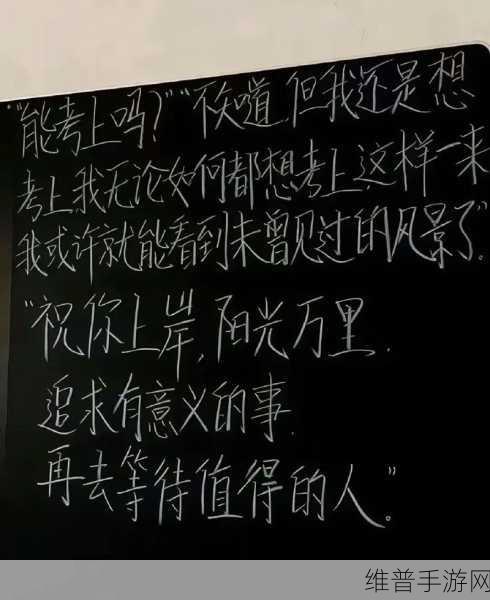 “能考上吗?”“不知道,但我还是想
考上,我无论如何都想考上,这样一来
我或许就能看到未曾见过的风景了”。
“祝你上岸,阳光万里.
追求有意义的事.
再去等待值得的人。”
维普手游网